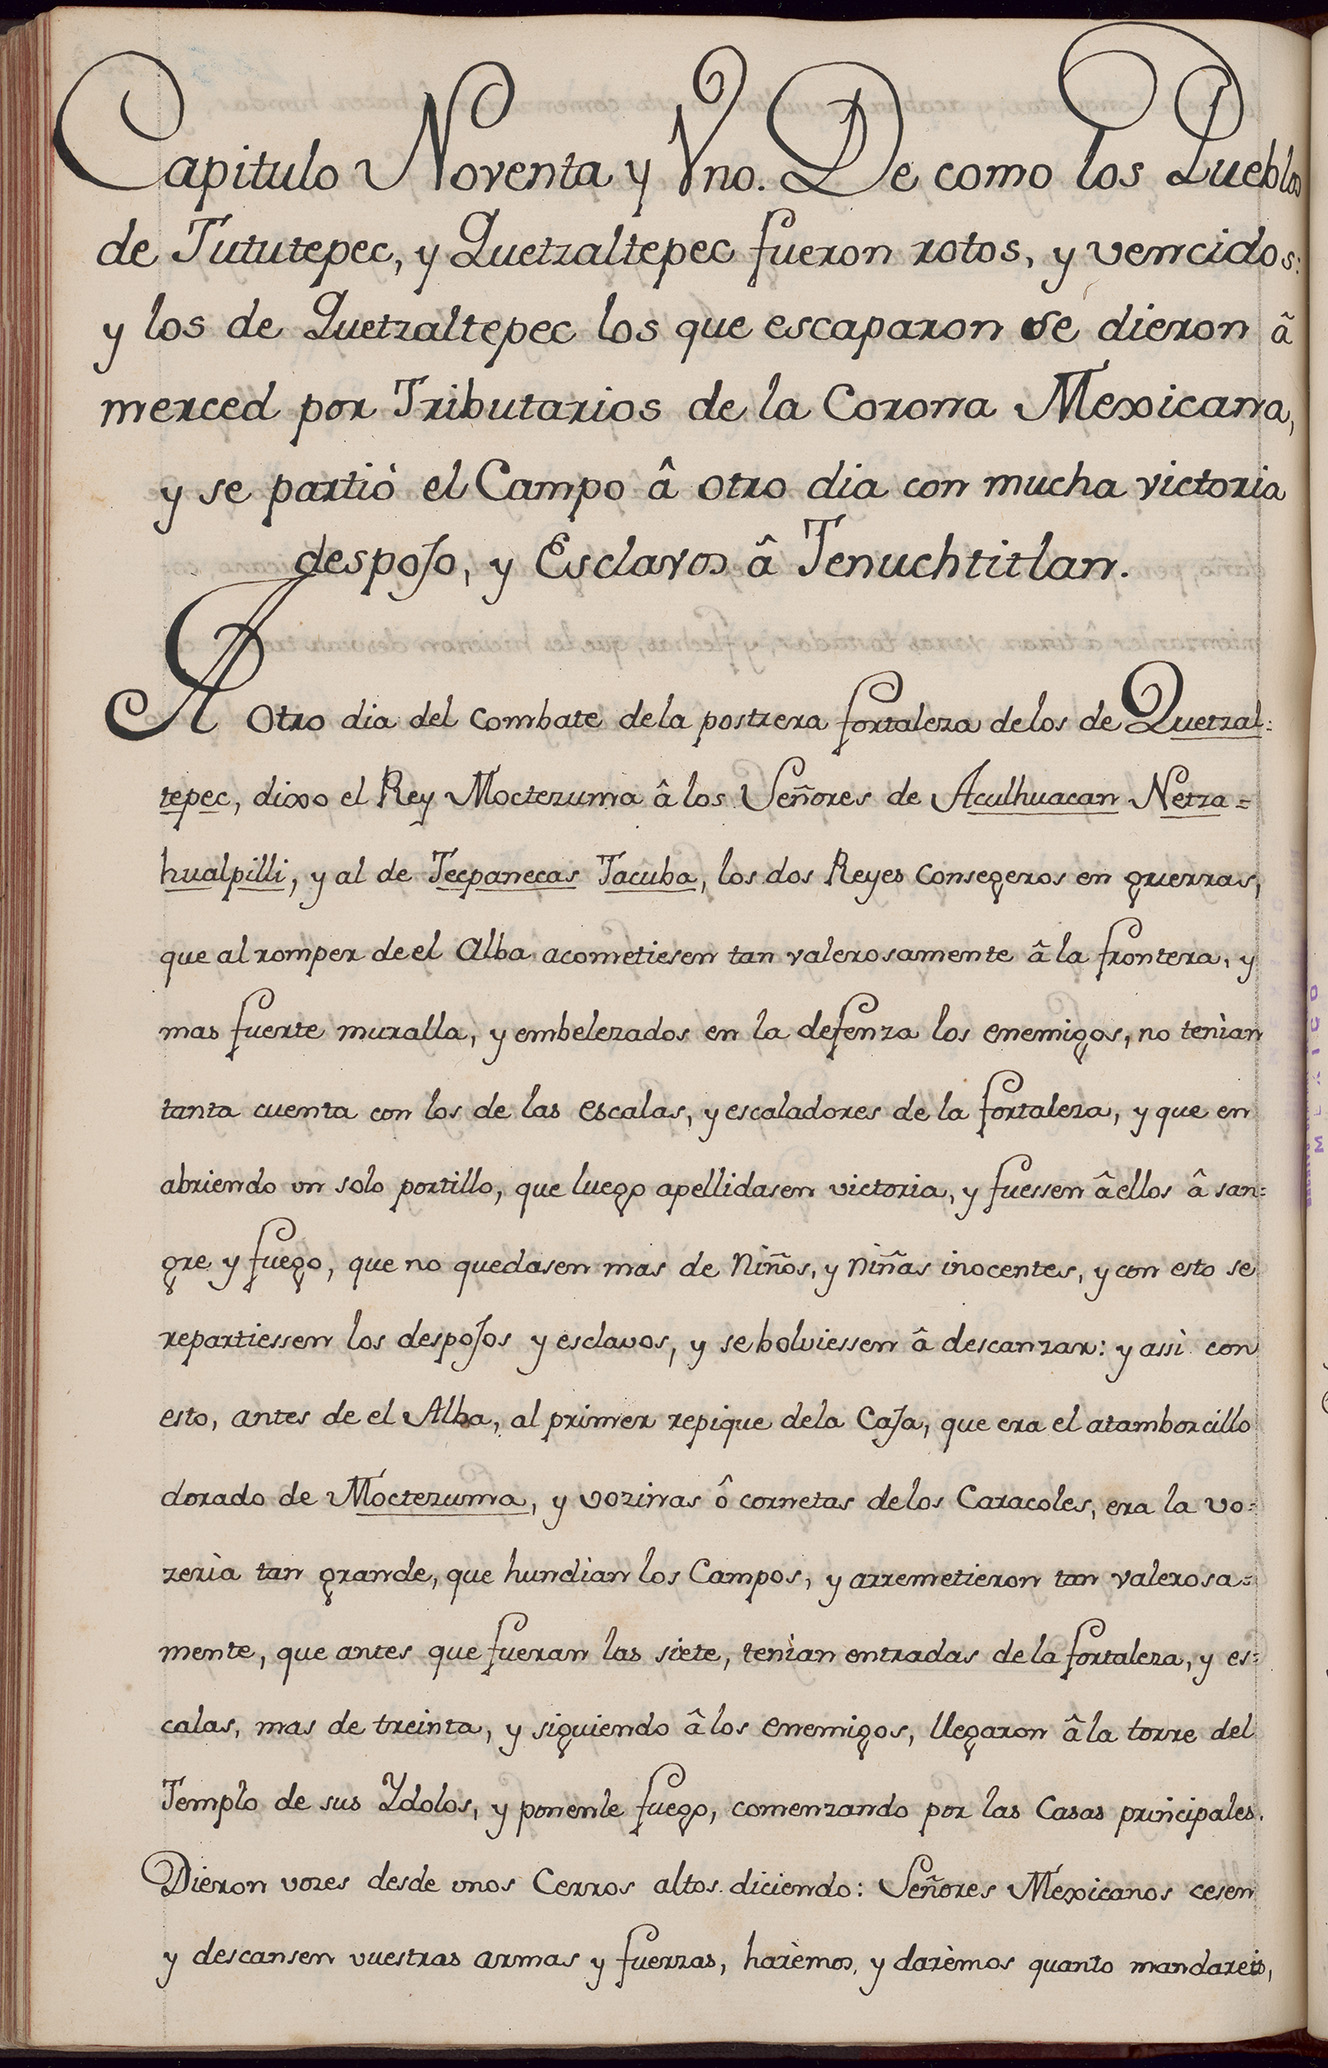 Capitulo Noventa y Vno. De como los Pueblos
de Tututepec, y Quetzaltepec fueron rotos, y vencidos:
y los de Quetzaltepec los que escaparon se dieron â
merced por Tributarios de la Corona Mexicana,
y se partiò el Campo â otro dia con mucha victoria
despojo, y Esclavos â Tenuchtitlan.
A Otro dia del Combate dela postrera fortaleza delos de Quetzal=
tepec, dixo el Rey Moctezuma â los Señores de Aculhuacan Netza=
hualpilli, y al de Tecpanecas Tacuba, los dos Reyes Consegeros en guerras,
que al romper de el Alba acometiesen tan valerosamente â la frontera, y
mas fuerte muralla, y embelezados en la defenza los enemigos, no tenìan
tanta cuenta con los de las escalas, y escaladores de la fortaleza, y que en
abriendo un solo portillo, que luego apellidasen victoria, y fuessen â ellos â san=
gre y fuego, que no quedasen mas de Niños, y Niñas inocentes, y con esto se
repartiessen los despojos y esclavos, y se bolviessen â descanzar: y assì con
esto, antes de el Alba, al primer repique dela Caja, que era el atamborcillo
dorado de Moctezuma, y vozinas ô cornetas delos Caracoles, era la vo=
zerìa tan grande, que hundian los Campos, y arremetieron tan valerosa=
mente, que antes que fueran las siete, tenìan entradas de la fortaleza, y es=
calas, mas de treinta, y siguiendo â los enemigos, llegaron â la torre del
Templo de sus Ydolos, y ponenle fuego, comenzando por las Casas principales.
Dieron vozes desde unos Cerros altos diciendo: Señores Mexicanos cesen
y descansen vuestras armas y fuerzas, harèmos, y darèmos quanto mandareis,